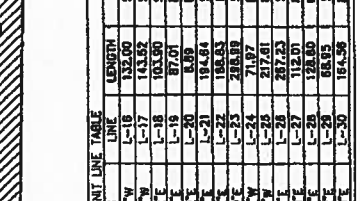 NIT LINE TABLE
LINE LENGTH
"W L-16 132.00
"W L-17 143.52
"E L-18 103.90
"E L-19 87.01
"E L-20 8.89
"E L-21 194.64
"E L-22 188.63
"E L-23 298.89
"W L-24 71.97
"W L-25 217.61
"E L-26 267.23
"E L-27 112.01
"E L-28 128.60
"E L-29 68.95
"E L-30 164.56